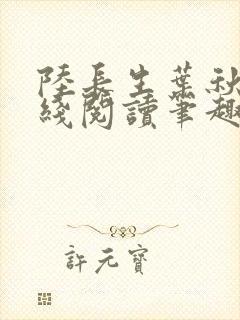 陸長生葉秋
綫閱讀筆趣
許元寶